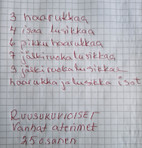 3 haarukkaa
4 isoa lusikkaa
6 pikku haarukkaa
7 jälkiruokalusikkaa
9 jälkiruokalusikkaa
haarukka ja lusikka isot
RUUSUKUVIOISET
Vanhat aterimet
25 osainen